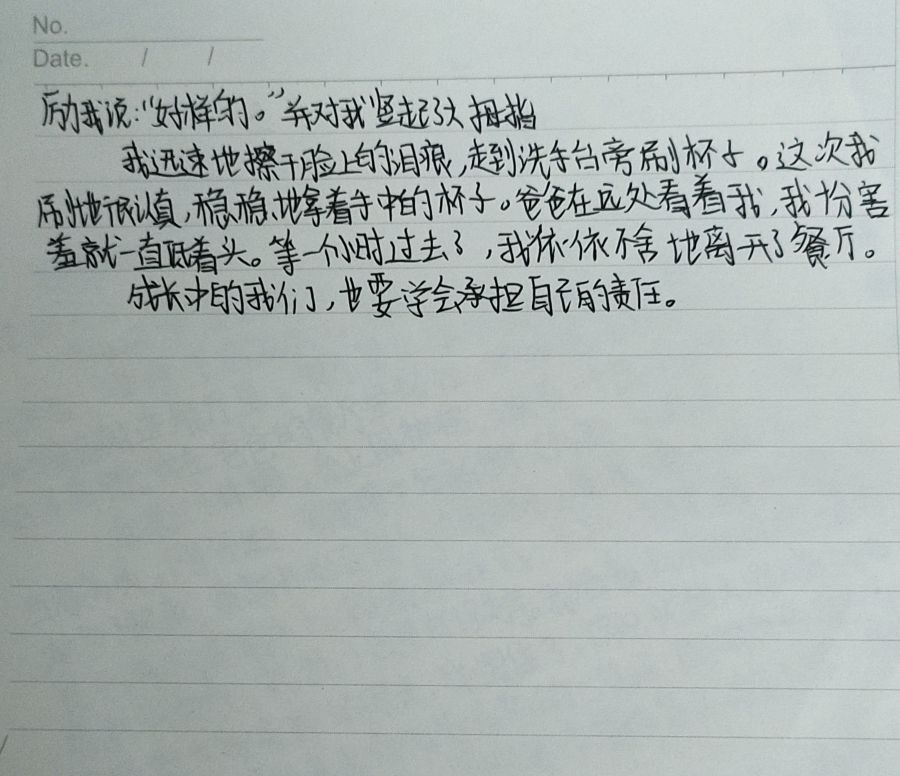 No.
Date. / /
励我说:“好样的。”并对我竖起了大拇指
我迅速地擦干脸上的泪痕,走到洗手台旁刷杯子。这次我
刷地很认真,稳稳地拿着手中的杯子。爸爸在远处看着我,我怕害
羞就一直低着头。等一个小时过去了,我依依不舍地离开了餐厅。
成长中的我们,也要学会承担自己的责任。